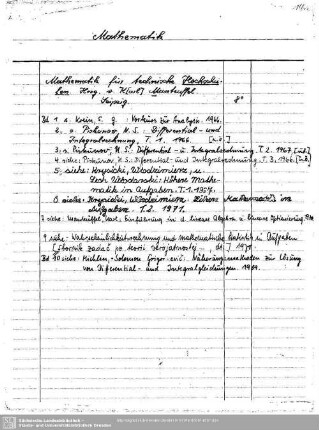 Mathematik
Mathematik für technische Hochschu-
len Hrsg. v. K[arl] Manteuffel
Leipzig. 8°
Bd 1 s. Kolin, S. G. Vorkurs zur Analysis. 1966.
2. s. Piskunov, N. S. : Differential- und
Integralrechnung, T. 1. 1966. [u.ö.]
3. s. Piskunov, N. S. Differential- u. Integralrechnung T. 2. 1967 [u.ö.]
4 siehe: Piskunov, N. S.: Differential- und Integralrechnung T. 3. 1966. [u.ö.]
5, siehe: Krysicki, Włodzimierz, u.
Lech Włodarski: Höhere Mathe-
matik in Aufgaben. T. 1. 1967.
6 siehe: Krysicki, Włodzimierz Höhere Mathematik in
Aufgaben. T. 2. 1971.
siehe: Manteuffel, Karl: Einführung in d. lineare Algebra u. lineare Optimierung.
9 siehe: Wahrscheinlichkeitsrechnung und mathematische Statistik in Aufgaben
[Sbornik zadač po teorii verojatnostej, dt.] 1971.
Bd 10 siehe: Michlin, Solomon Grigor'evič: Näherungsmethoden zur Lösung
von Differential- und Integralgleichungen. 1969.
Sächsische Landesbibliothek -
Staats- und Universitätsbibliothek Dresden